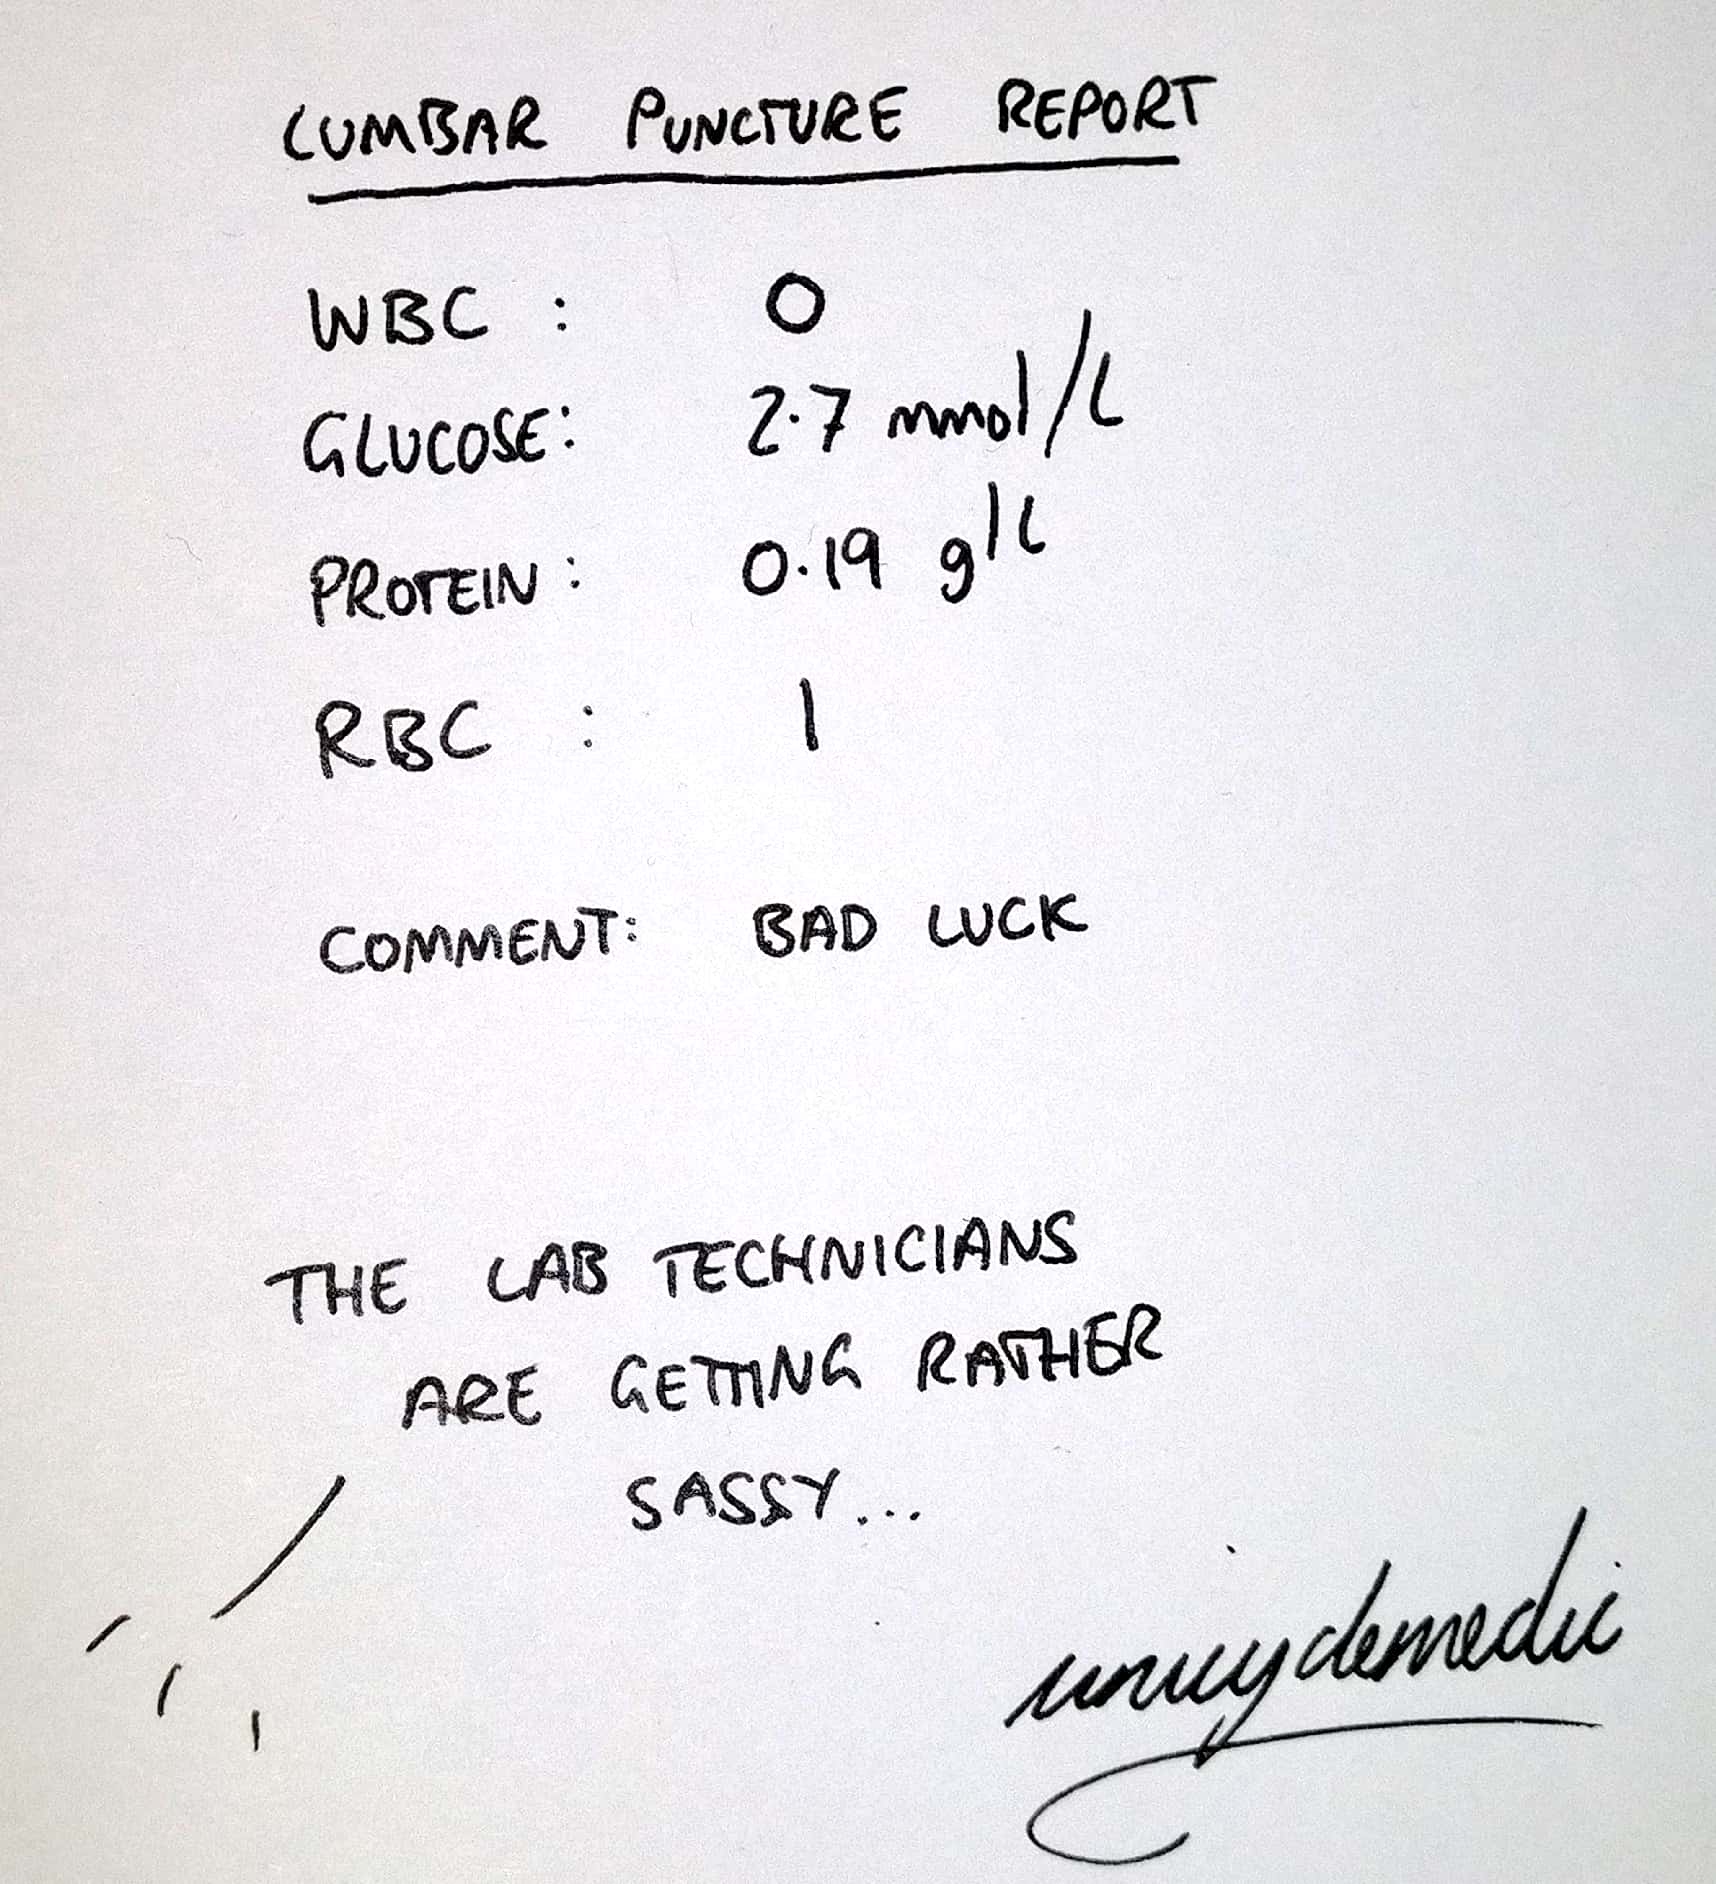 LUMBAR PUNCTURE REPORT
WBC : 0
GLUCOSE: 2.7 mmol/L
PROTEIN: 0.19 g/L
RBC : 1
COMMENT: BAD LUCK
THE LAB TECHNICIANS
ARE GETTING RATHER
SASSY...
unicyclemedic